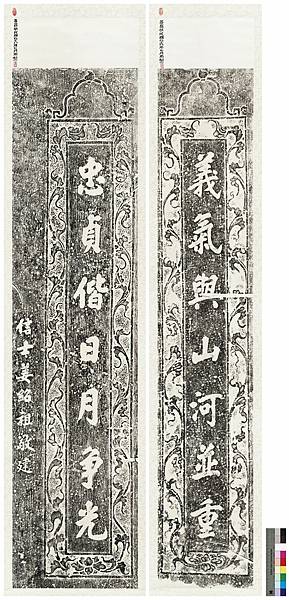 義氣與山河並重
忠貞偕日月争光
信士姜紹祖敬建